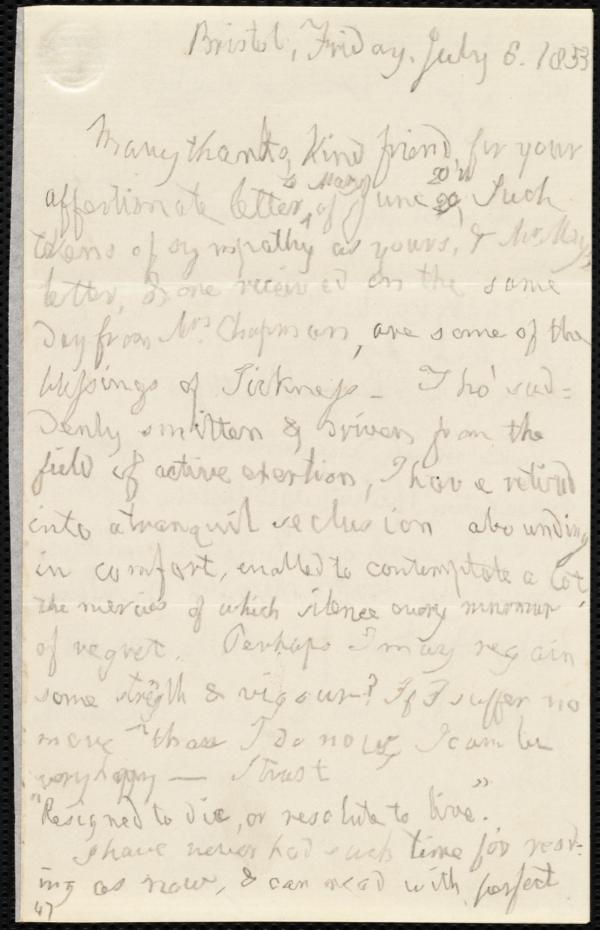 Bristol, Friday. July 6. 1853
Many thanks, kind friend, for your
to Mary 20th
affectionate letter, of June Such
tokens of sympathy as yours, & Mr May's
letter, & one received on the same
Day from Mrs Chapman, are some of the
blessings of Sickness - Tho' sud=
denly smitten & driven from the
field of active exertion, I have retired
into a tranquil seclusion abounding
in comfort, enabled to contemplate a Lot,
the mercies of which silence every murmur
of regret. Perhaps I may regain
some strength & vigour? If I suffer no
more than I do now, I can be
very happy — I trust
"Resigned to die, or resolute to live."
I have never had such time for read-
ing as now, & can read with perfect
47